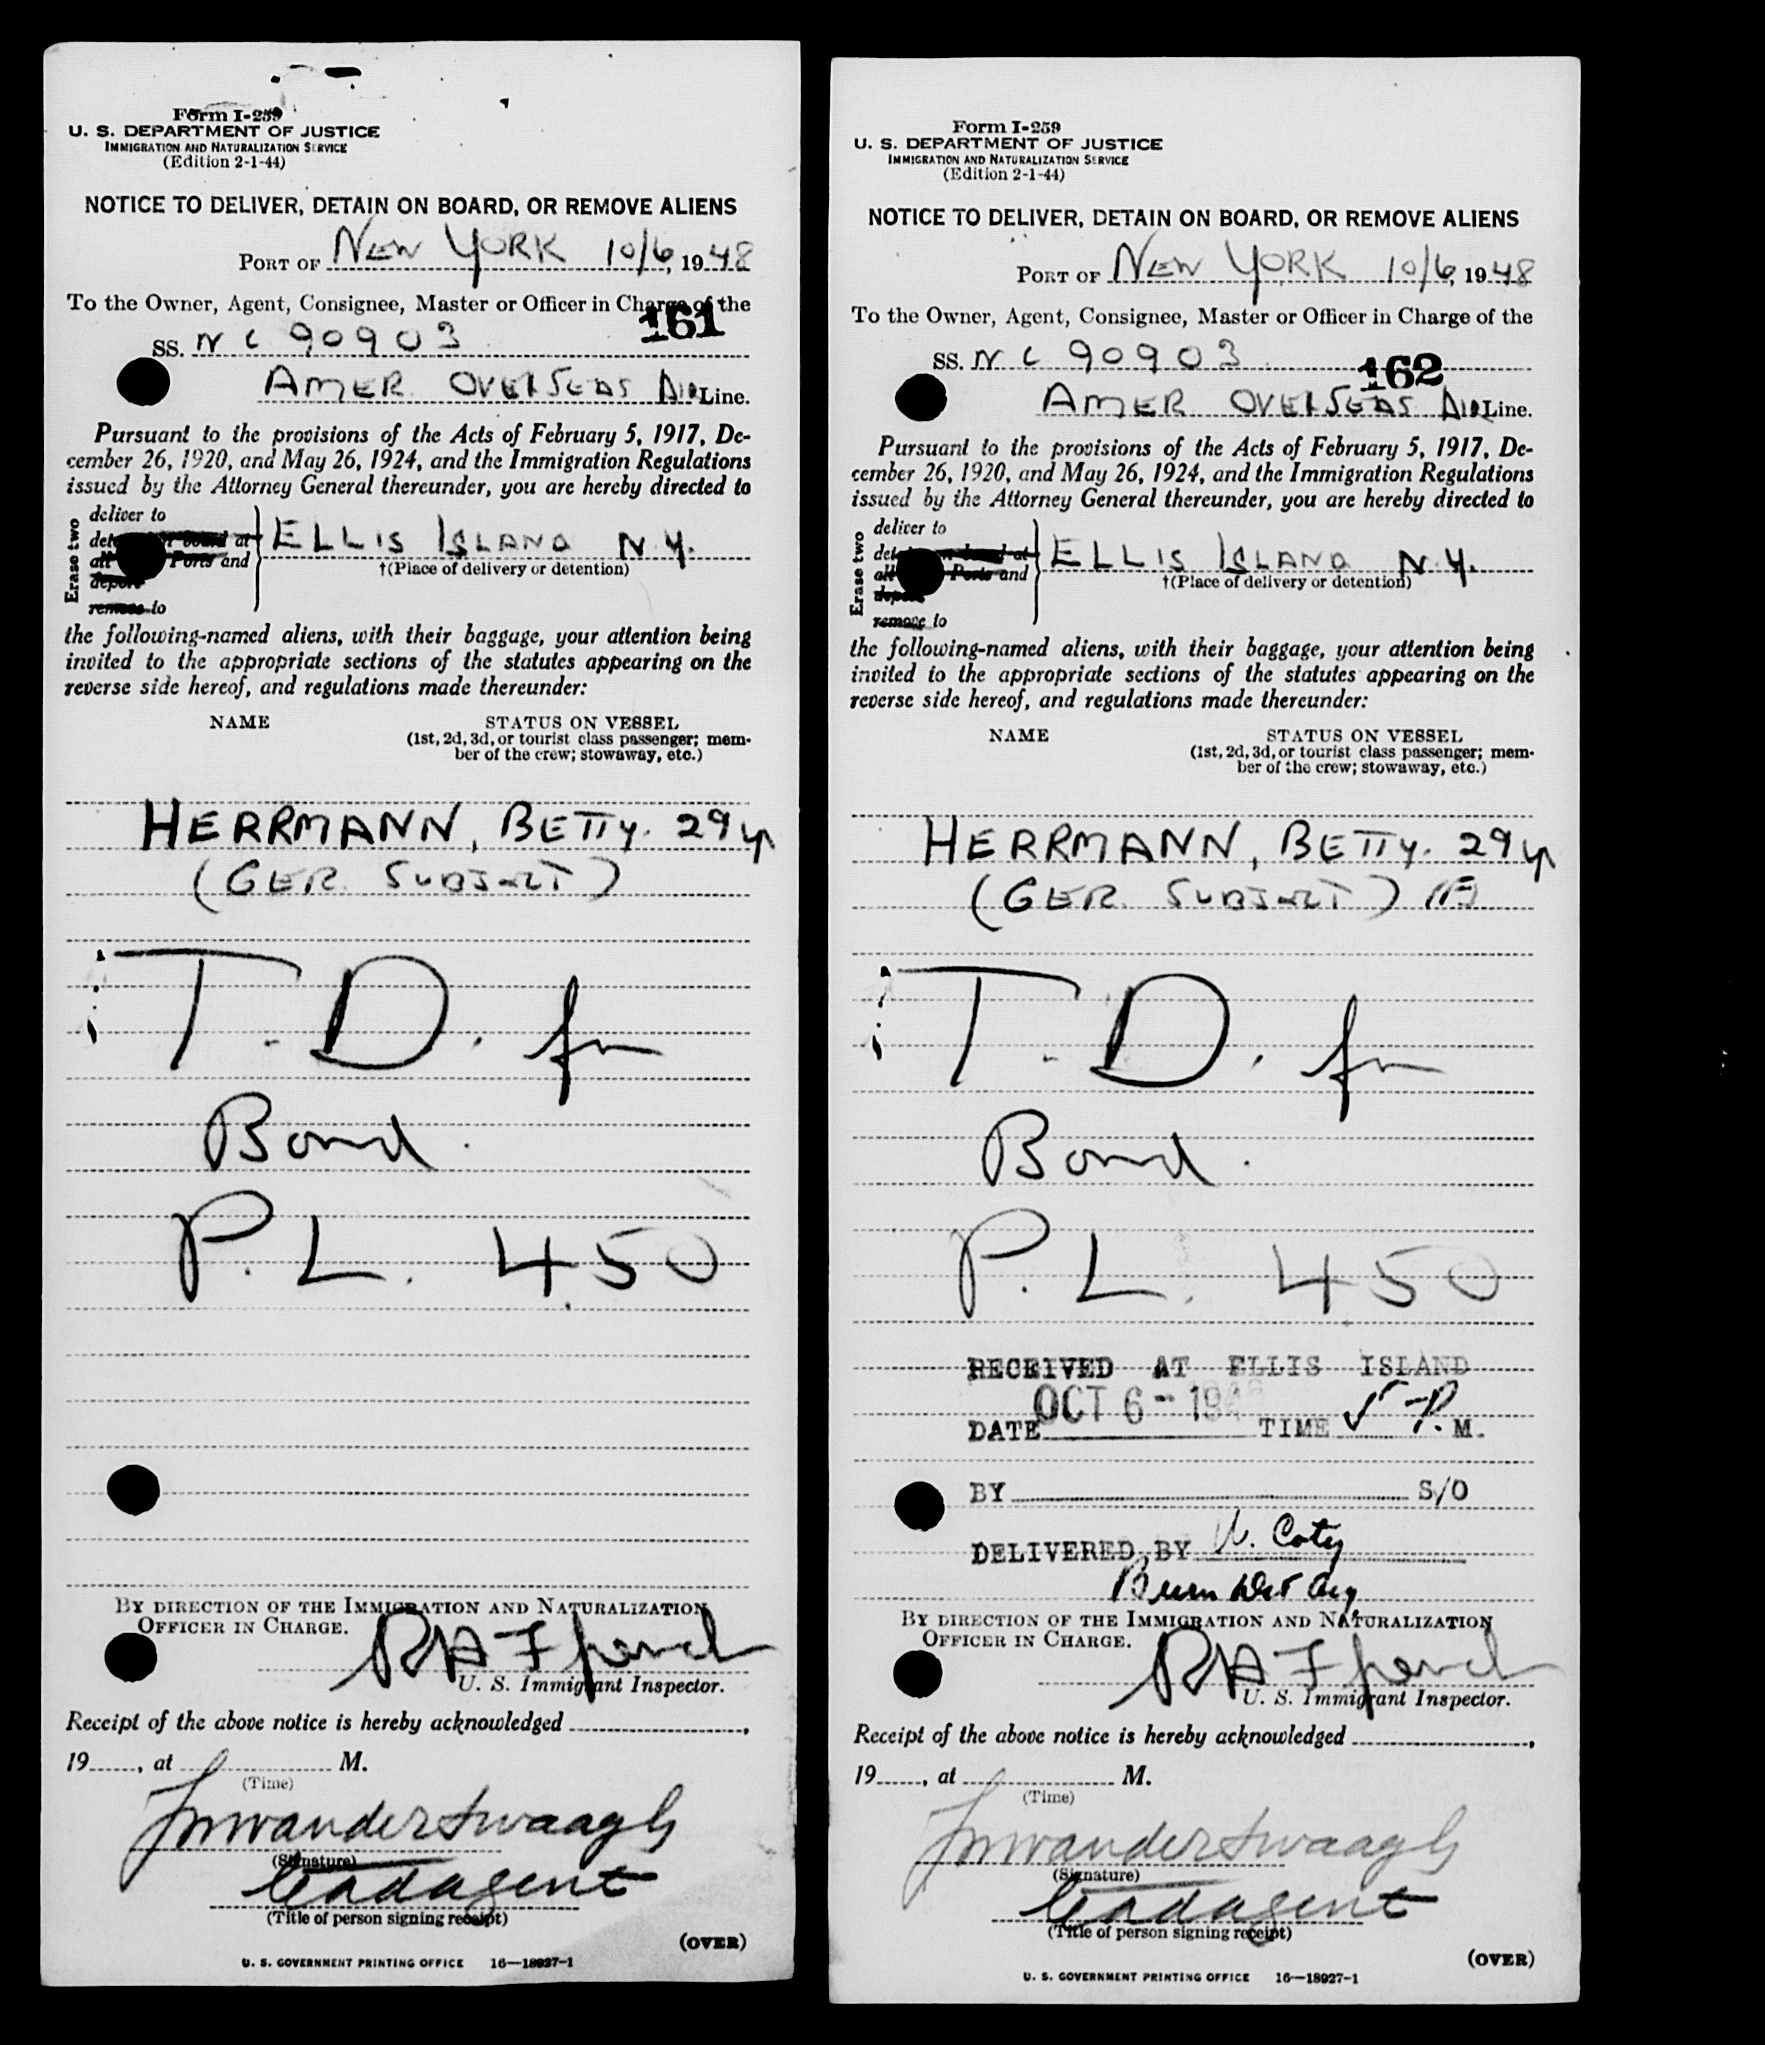 Form I-259
U. S. DEPARTMENT OF JUSTICE
IMMIGRATION AND NATURALIZATION SERVICE
(Edition 2-1-44)
NOTICE TO DELIVER, DETAIN ON BOARD, OR REMOVE ALIENS
PORT OF NEW YORK 10/6, 1948
To the Owner, Agent, Consignee, Master or Officer in Charge of the
161
SS. N C 90903
AMER OVERSEAS AIR Line.
Pursuant to the provisions of the Acts of February 5, 1917, De-
cember 26, 1920, and May 26, 1924, and the Immigration Regulations
issued by the Attorney General thereunder, you are hereby directed to
Erase two
deliver to
at ELLIS ISLAND N.Y.
all Ports and
†(Place of delivery or detention)
deport
remove to
the following-named aliens, with their baggage, your attention being
invited to the appropriate sections of the statutes appearing on the
reverse side hereof, and regulations made thereunder:
NAME STATUS ON VESSEL
(1st, 2d, 3d, or tourist class passenger; mem-
ber of the crew; stowaway, etc.)
HERRMANN, BETTY. 29 yr
(GER. SUBJECT)
T. D. for
Bond.
P. L. 450
BY DIRECTION OF THE IMMIGRATION AND NATURALIZATION
OFFICER IN CHARGE.
U. S. Immigrant Inspector.
Receipt of the above notice is hereby acknowledged ,
19 , at M.
(Time)
(Signature)
(Title of person signing receipt)
(OVER)
U. S. GOVERNMENT PRINTING OFFICE 16—18927-1
Form I-259
U. S. DEPARTMENT OF JUSTICE
IMMIGRATION AND NATURALIZATION SERVICE
(Edition 2-1-44)
NOTICE TO DELIVER, DETAIN ON BOARD, OR REMOVE ALIENS
PORT OF NEW YORK 10/6, 1948
To the Owner, Agent, Consignee, Master or Officer in Charge of the
SS. N C 90903
162
AMER OVERSEAS AIR Line.
Pursuant to the provisions of the Acts of February 5, 1917, De-
cember 26, 1920, and May 26, 1924, and the Immigration Regulations
issued by the Attorney General thereunder, you are hereby directed to
Erase two
deliver to
at ELLIS ISLAND N.Y.
all Ports and
†(Place of delivery or detention)
deport
remove to
the following-named aliens, with their baggage, your attention being
invited to the appropriate sections of the statutes appearing on the
reverse side hereof, and regulations made thereunder:
NAME STATUS ON VESSEL
(1st, 2d, 3d, or tourist class passenger; mem-
ber of the crew; stowaway, etc.)
HERRMANN, BETTY. 29 yr
(GER. SUBJECT)
T. D. for
Bond.
P. L. 450
RECEIVED AT ELLIS ISLAND
DATE OCT 6 - 194 TIME 5 P. M.
BY S/O
DELIVERED BY Coty
BY DIRECTION OF THE IMMIGRATION AND NATURALIZATION
OFFICER IN CHARGE.
U. S. Immigrant Inspector.
Receipt of the above notice is hereby acknowledged ,
19 , at M.
(Time)
(Signature)
(Title of person signing receipt)
(OVER)
U. S. GOVERNMENT PRINTING OFFICE 16—18927-1